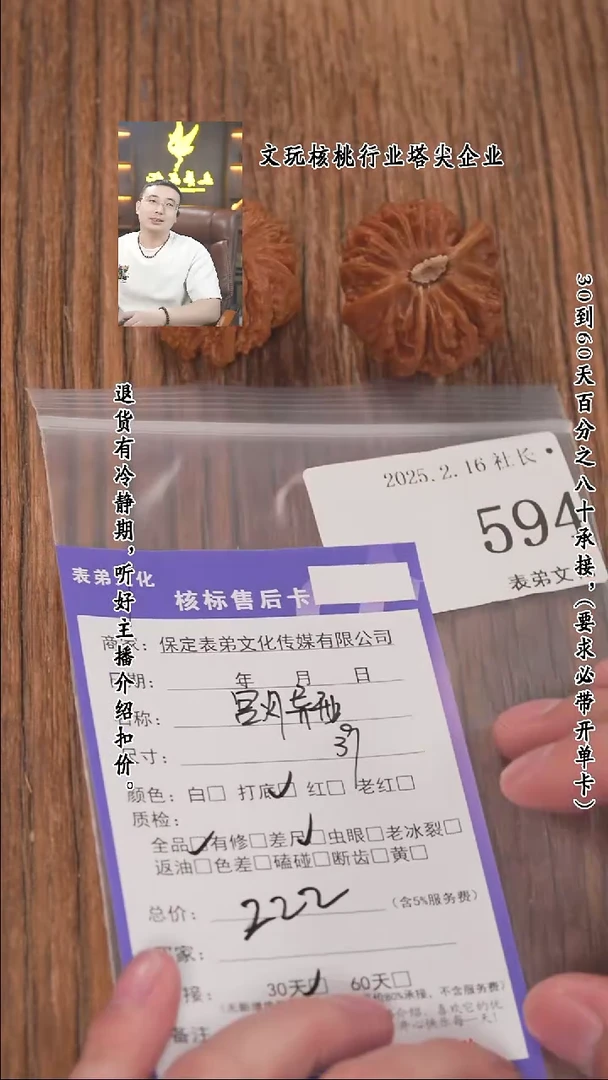 文玩核桃行业塔尖企业
30到60天百分之八十承接，（要求必带开单卡）
退货有冷静期，听好主播介绍扣价。
2025.2.16 社长
594
表弟文
表弟 化
核标售后卡
商家：保定表弟文化传媒有限公司
日期： 年 月 日
名称：宫灯异形
尺寸：39
颜色：白□ 打底□ 红□ 老红□
质检：
全品□有修□差尺□虫眼□老冰裂□
返油□色差□磕碰□断齿□黄□
总价：222（含5%服务费）
家：
接：30天□ 60天□
价80%承接，不含服务费）
备注
介绍，喜欢它的优
开心快乐每一天！